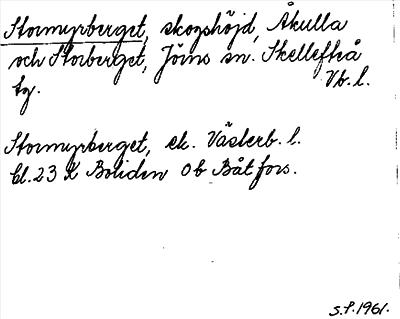 Stormyrberget, skogshöjd, Åkulla
och Storberget, Jörns sn. Skellefteå
tg. Vb. l.
Stormyrberget, ek. Västerb. l.
bl. 23 X Boliden Ob Båtfors.
S.P. 1961.